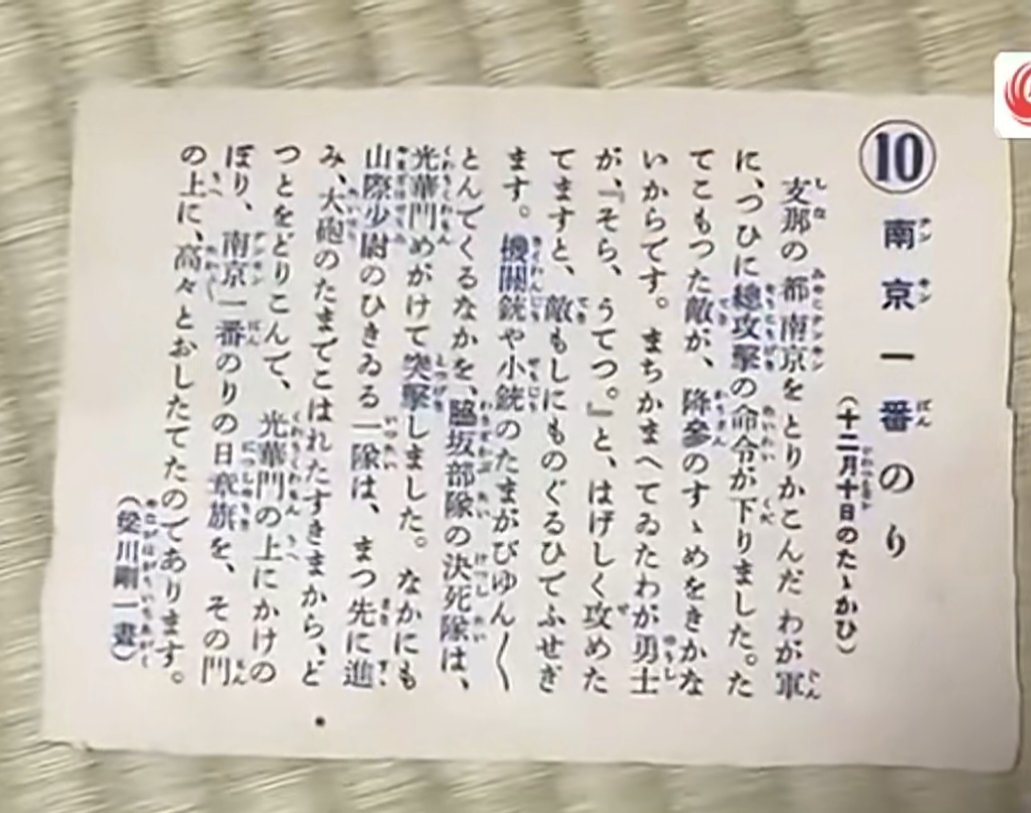 ⑩ 南京一番のり
(十二月十日のたゝかひ)
支那の都南京をとりかこんだ わが軍
に、つひに總攻擊の命令が下りました。た
てこもつた敵が、降參のすゝめをきかな
いからです。まちかまへてゐたわが勇士
が、『そら、うてつ。』と、はげしく攻めた
てますと、敵もしにものぐるひでふせぎ
ます。機關銃や小銃のたまがびゆん〳〵
とんでくるなかを、脇坂部隊の決死隊は、
光華門めがけて突擊しました。なかにも
山際少尉のひきゐる一隊は、まつ先に進
み、大砲のたまでこはれたすきまから、ど
つとをどりこんで、光華門の上にかけの
ぼり、南京一番のりの日章旗を、その門
の上に、高々とおしたてたのであります。
(梁川剛一畫)